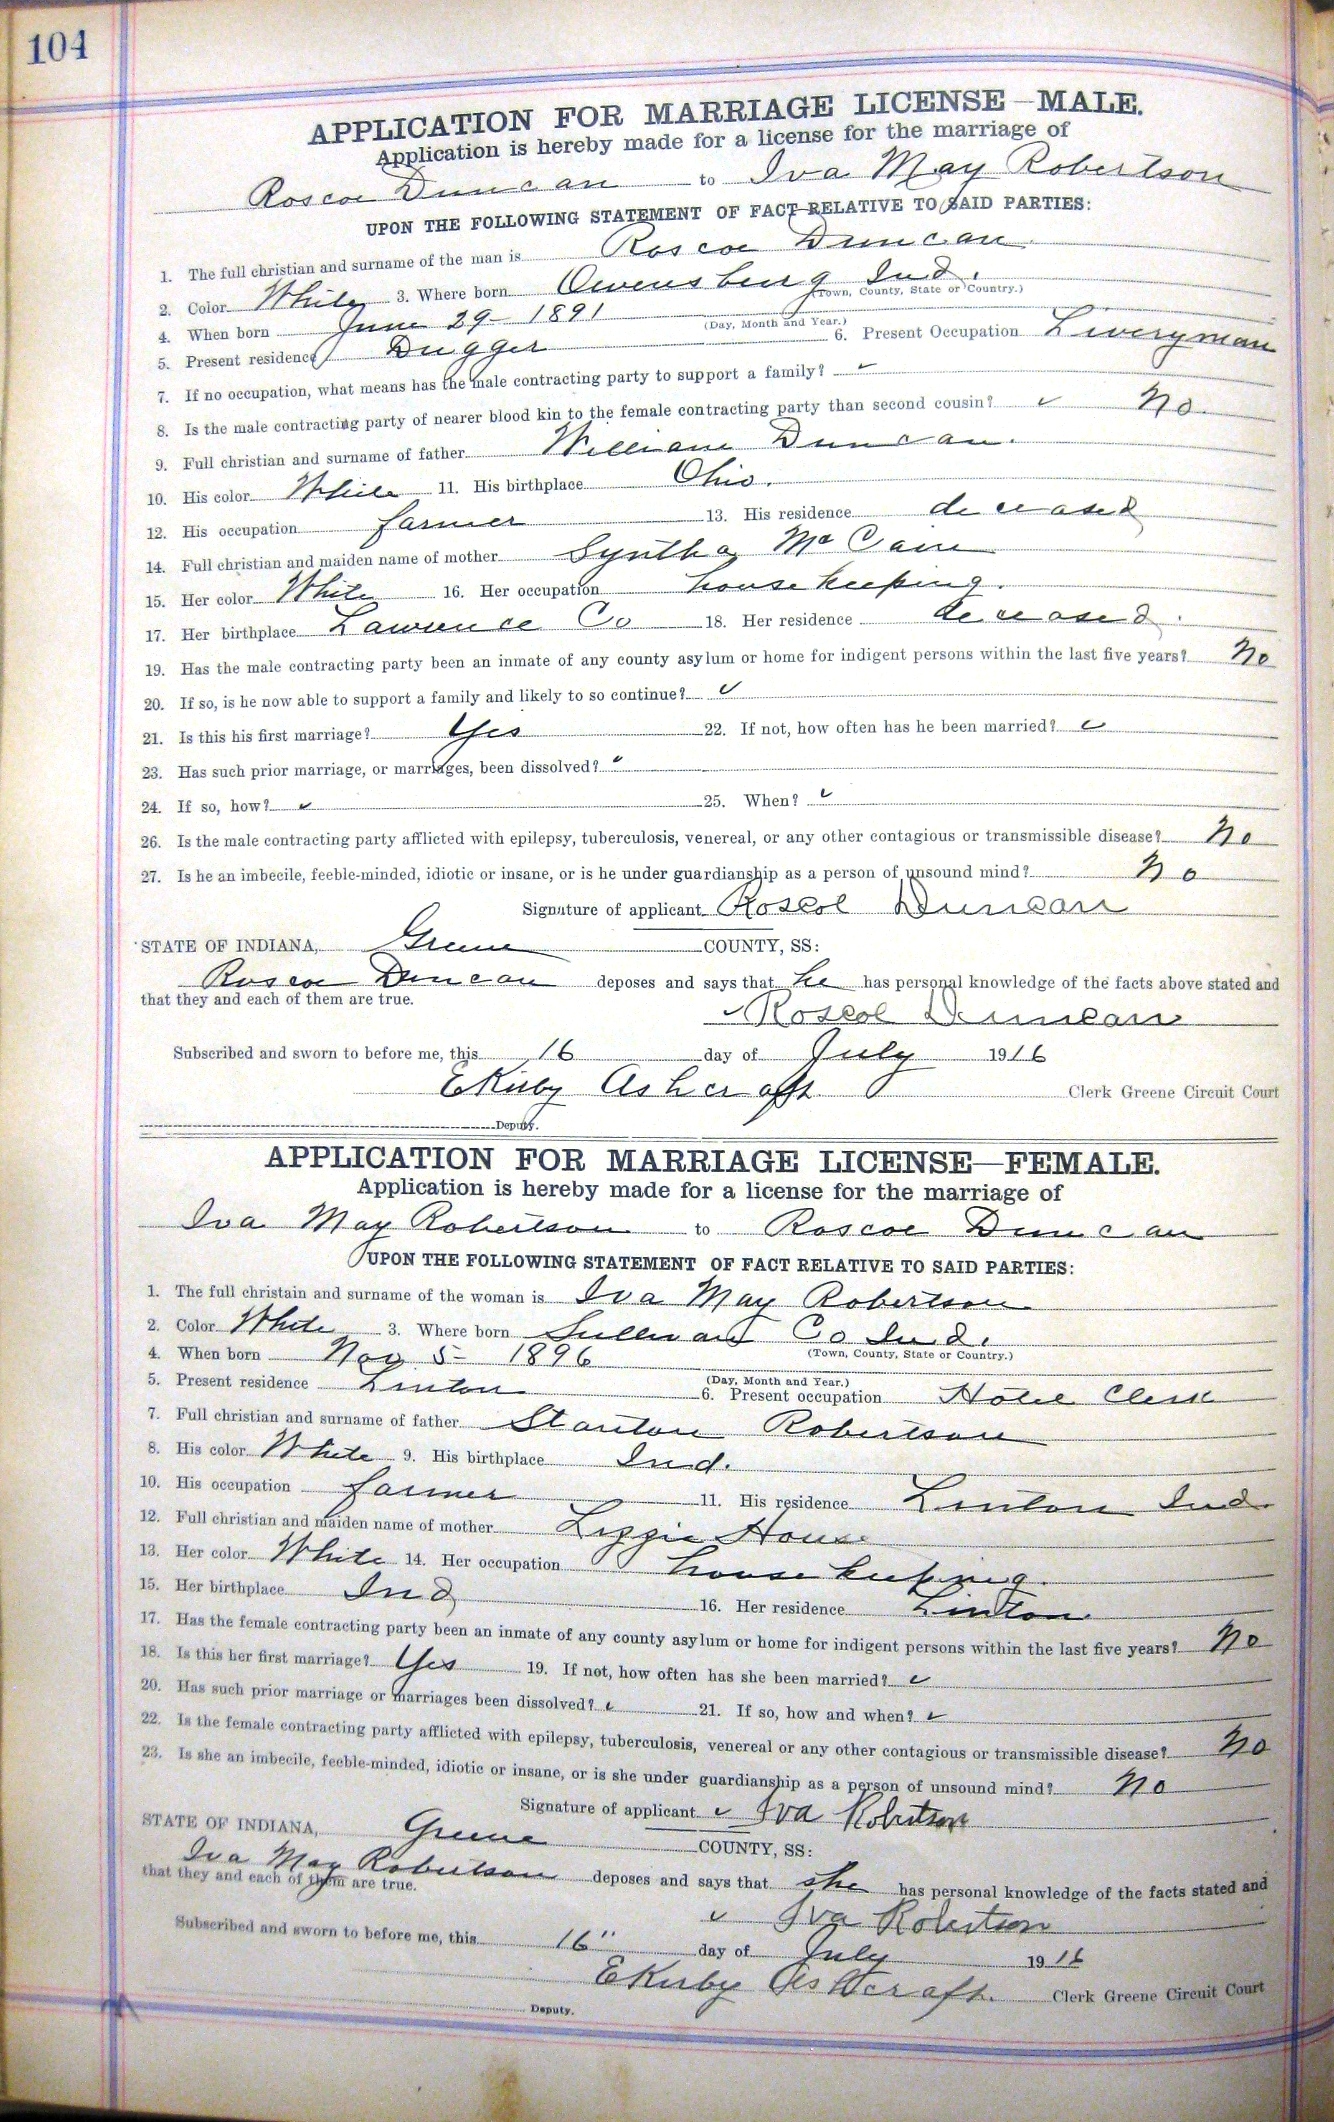 104
APPLICATION FOR MARRIAGE LICENSE—MALE.
Application is hereby made for a license for the marriage of
Roscoe Duncan to Iva May Robertson
UPON THE FOLLOWING STATEMENT OF FACT RELATIVE TO SAID PARTIES:
1. The full christian and surname of the man is Roscoe Duncan
2. Color White 3. Where born Owensburg Ind.
(Town, County, State or Country.)
4. When born June 29- 1891
(Day, Month and Year.)
5. Present residence Dugger 6. Present Occupation Liveryman
7. If no occupation, what means has the male contracting party to support a family? ✓
8. Is the male contracting party of nearer blood kin to the female contracting party than second cousin? ✓ No.
9. Full christian and surname of father William Duncan.
10. His color White 11. His birthplace Ohio.
12. His occupation farmer 13. His residence deceased
14. Full christian and maiden name of mother Syntha McCain
15. Her color White 16. Her occupation housekeeping.
17. Her birthplace Lawrence Co 18. Her residence deceased.
19. Has the male contracting party been an inmate of any county asylum or home for indigent persons within the last five years? No
20. If so, is he now able to support a family and likely to so continue? ✓
21. Is this his first marriage? Yes 22. If not, how often has he been married? ✓
23. Has such prior marriage, or marriages, been dissolved? ✓
24. If so, how? ✓ 25. When? ✓
26. Is the male contracting party afflicted with epilepsy, tuberculosis, venereal, or any other contagious or transmissible disease? No
27. Is he an imbecile, feeble-minded, idiotic or insane, or is he under guardianship as a person of unsound mind? No
Signature of applicant Roscoe Duncan
STATE OF INDIANA, Greene COUNTY, SS:
Roscoe Duncan deposes and says that he has personal knowledge of the facts above stated and
that they and each of them are true.
✓ Roscoe Duncan
Subscribed and sworn to before me, this 16 day of July 1916
E Kirby Ashcraft Clerk Greene Circuit Court
Deputy.
APPLICATION FOR MARRIAGE LICENSE—FEMALE.
Application is hereby made for a license for the marriage of
Iva May Robertson to Roscoe Duncan
UPON THE FOLLOWING STATEMENT OF FACT RELATIVE TO SAID PARTIES:
1. The full christain and surname of the woman is Iva May Robertson
2. Color White 3. Where born Sullivan Co Ind.
(Town, County, State or Country.)
4. When born Nov 5- 1896
(Day, Month and Year.)
5. Present residence Linton 6. Present occupation Hotel Clerk
7. Full christian and surname of father Stanton Robertson
8. His color White 9. His birthplace Ind.
10. His occupation farmer 11. His residence Linton Ind.
12. Full christian and maiden name of mother Lizzie House
13. Her color White 14. Her occupation housekeeping.
15. Her birthplace Ind 16. Her residence Linton.
17. Has the female contracting party been an inmate of any county asylum or home for indigent persons within the last five years? No
18. Is this her first marriage? Yes 19. If not, how often has she been married? ✓
20. Has such prior marriage or marriages been dissolved? ✓ 21. If so, how and when? ✓
22. Is the female contracting party afflicted with epilepsy, tuberculosis, venereal or any other contagious or transmissible disease? No
23. Is she an imbecile, feeble-minded, idiotic or insane, or is she under guardianship as a person of unsound mind? No
Signature of applicant ✓ Iva Robertson
STATE OF INDIANA, Greene COUNTY, SS:
Iva May Robertson deposes and says that she has personal knowledge of the facts stated and
that they and each of them are true.
✓ Iva Robertson
Subscribed and sworn to before me, this 16" day of July 1916
E Kirby Ashcraft. Clerk Greene Circuit Court
Deputy.